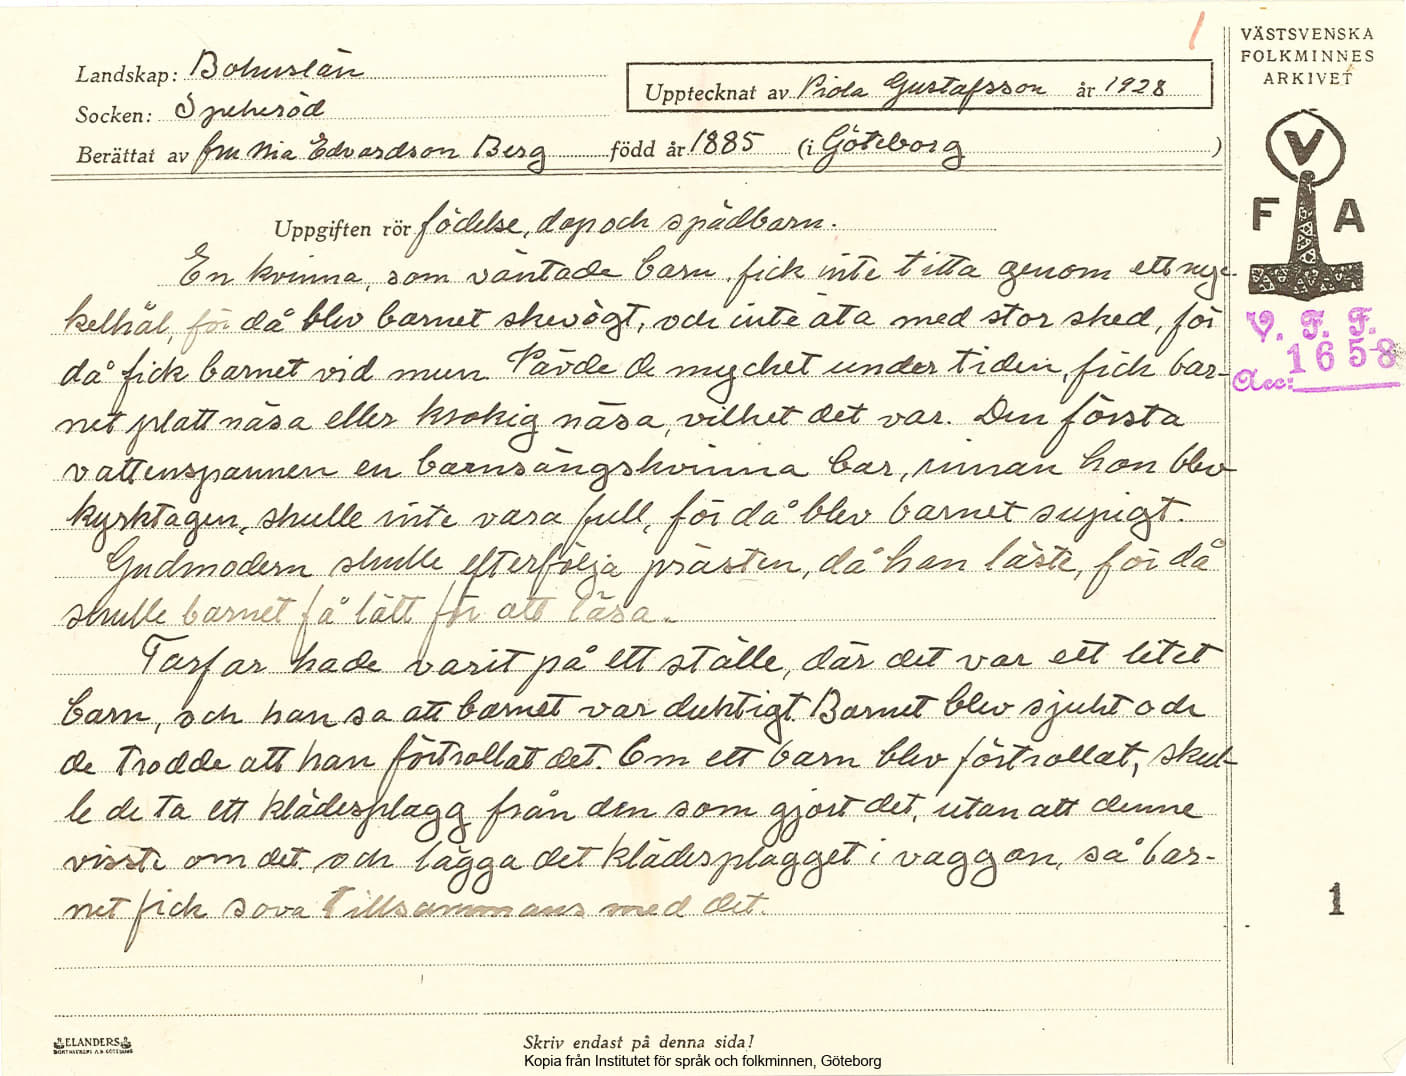 1
VÄSTSVENSKA
FOLKMINNES
ARKIVET
Landskap: Bohuslän
Upptecknat av Viola Gustafsson år 1928
Socken: Spekeröd
Berättat av fru Mia Edvardson Berg född år 1885 (i Göteborg )
V
F A
Uppgiften rör födelse, dop och spädbarn.
En kvinna, som väntade barn, fick inte titta genom ett nyc-
kelhål, för då blev barnet skevögt, och inte äta med stor sked, för
då fick barnet vid mun. Vävde de mycket under tiden, fick bar-
net platt näsa eller krokig näsa, vilket det var. Den första
vattenspannen en barnsängskvinna bar, innan hon blev
kyrktagen, skulle inte vara full, för då blev barnet supigt.
Gudmodern skulle efterfölja prästen, då han läste, för då
skulle barnet få lätt för att läsa.
Farfar hade varit på ett ställe, där det var ett litet
barn, och han sa att barnet var duktigt. Barnet blev sjukt och
de trodde att han förtrollat det. Om ett barn blev förtrollat, skul-
le de ta ett klädesplagg från den som gjort det, utan att denne
visste om det, och lägga det klädesplagget i vaggan, så bar-
net fick sova tillsammans med det.
V. F. F.
1658
Acc:
1
ELANDERS
Skriv endast på denna sida!
Kopia från Institutet för språk och folkminnen, Göteborg